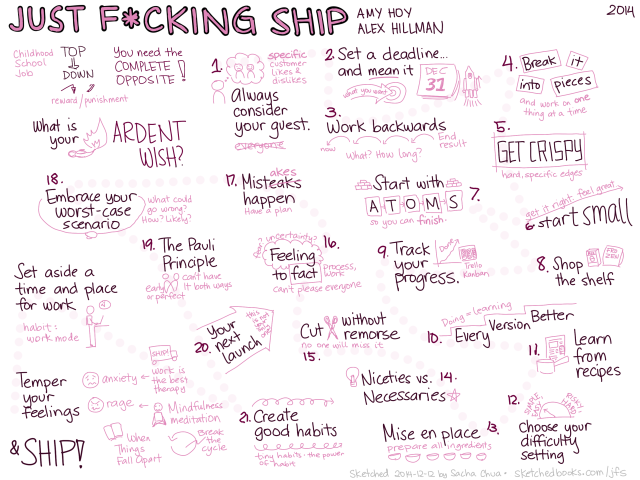 JUST F*CKING SHIP
AMY HOY
ALEX HILLMAN
2014
Childhood
School
Job
TOP
DOWN
reward/punishment
You need the
COMPLETE
OPPOSITE!
What is
your
ARDENT
WISH?
1.
specific
customer
likes &
dislikes
Always
consider
your guest.
everyone
2. Set a deadline...
and mean it
what you want
DEC
31
3.
Work backwards
now
What? How long?
End
result
4. Break it
into pieces
and work on one
thing at a time
5.
GET CRISPY
hard, specific edges
get it right, feel great
6. start small
Start with
ATOMS
7.
so you can finish.
8. Shop
the shelf
9. Track
your
progress.
Done
Trello
Kanban
10. Every Version Better
Doing = learning
11. Learn
from
recipes
12.
Choose your
difficulty
setting
Mise en place 13.
prepare all ingredients
Niceties vs. 14.
Necessaries
Cut without
remorse
no one will miss it
15.
16.
uncertainty?
Feeling
to fact
process,
work
can't please everyone
17. Misteaks
akes
happen
Have a plan
18.
Embrace your
worst-case
scenario
what could
go wrong?
How? Likely?
19. The Pauli
Principle
early
or perfect
can't have
it both ways
20. Your
next
launch
21. Create
good habits
tiny habits · the power
of habit
Set aside a
time and place
for work
habit:
work mode
Temper
your
feelings
anxiety
SHIP!
work is
the best
therapy
rage
Mindfulness
meditation
When
Things
Fall Apart
Break
the
cycle
& SHIP!
Sketched 2014-12-12 by Sacha Chua · sketchedbooks.com/jfs